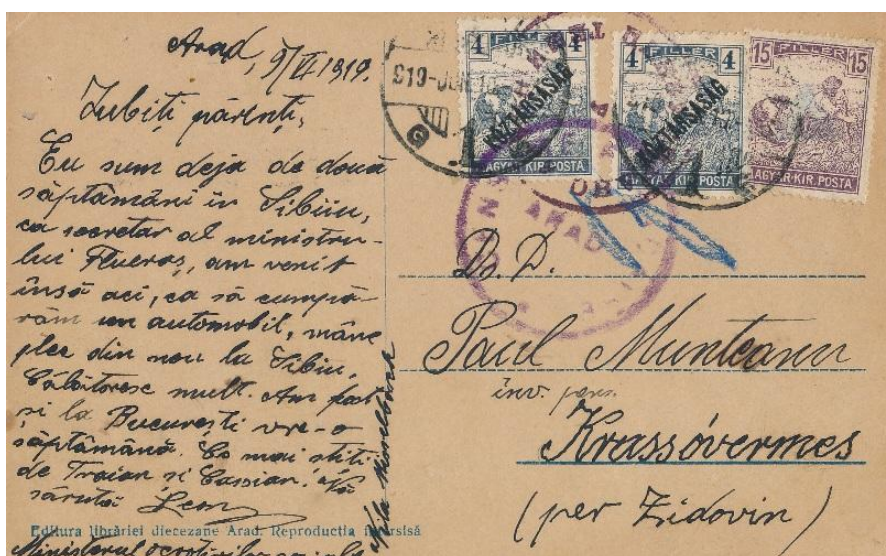 Arad, 9/VI 1919.
Iubiți părinți,
Eu sum deja de două
săptămâni in Sibiiu,
ca secretar al ministru-
lui Flueraș, am venit
însă aci, ca să cumpă-
răm un automobil, mâne
plec din nou la Sibiiu,
Călătoresc mult. Am fost
și la București vre-o
săptămână. Ce mai știti
de Traian si Cassian? Vă
sărută
Editura librăriei diecezane Arad. Reproductia
Ministerul ocrotirilor sociale
4 FILLER 4
KÖZTÁRSASÁG
MAGYAR KIR. POSTA
4 FILLER 4
KÖZTÁRSASÁG
MAGYAR KIR. POSTA
15 FILLER 15
MAGYAR KIR. POSTA
919-JUN.
ARAD
Paul Munteanu
inv.
Krassóvermes
(per Zidovin)